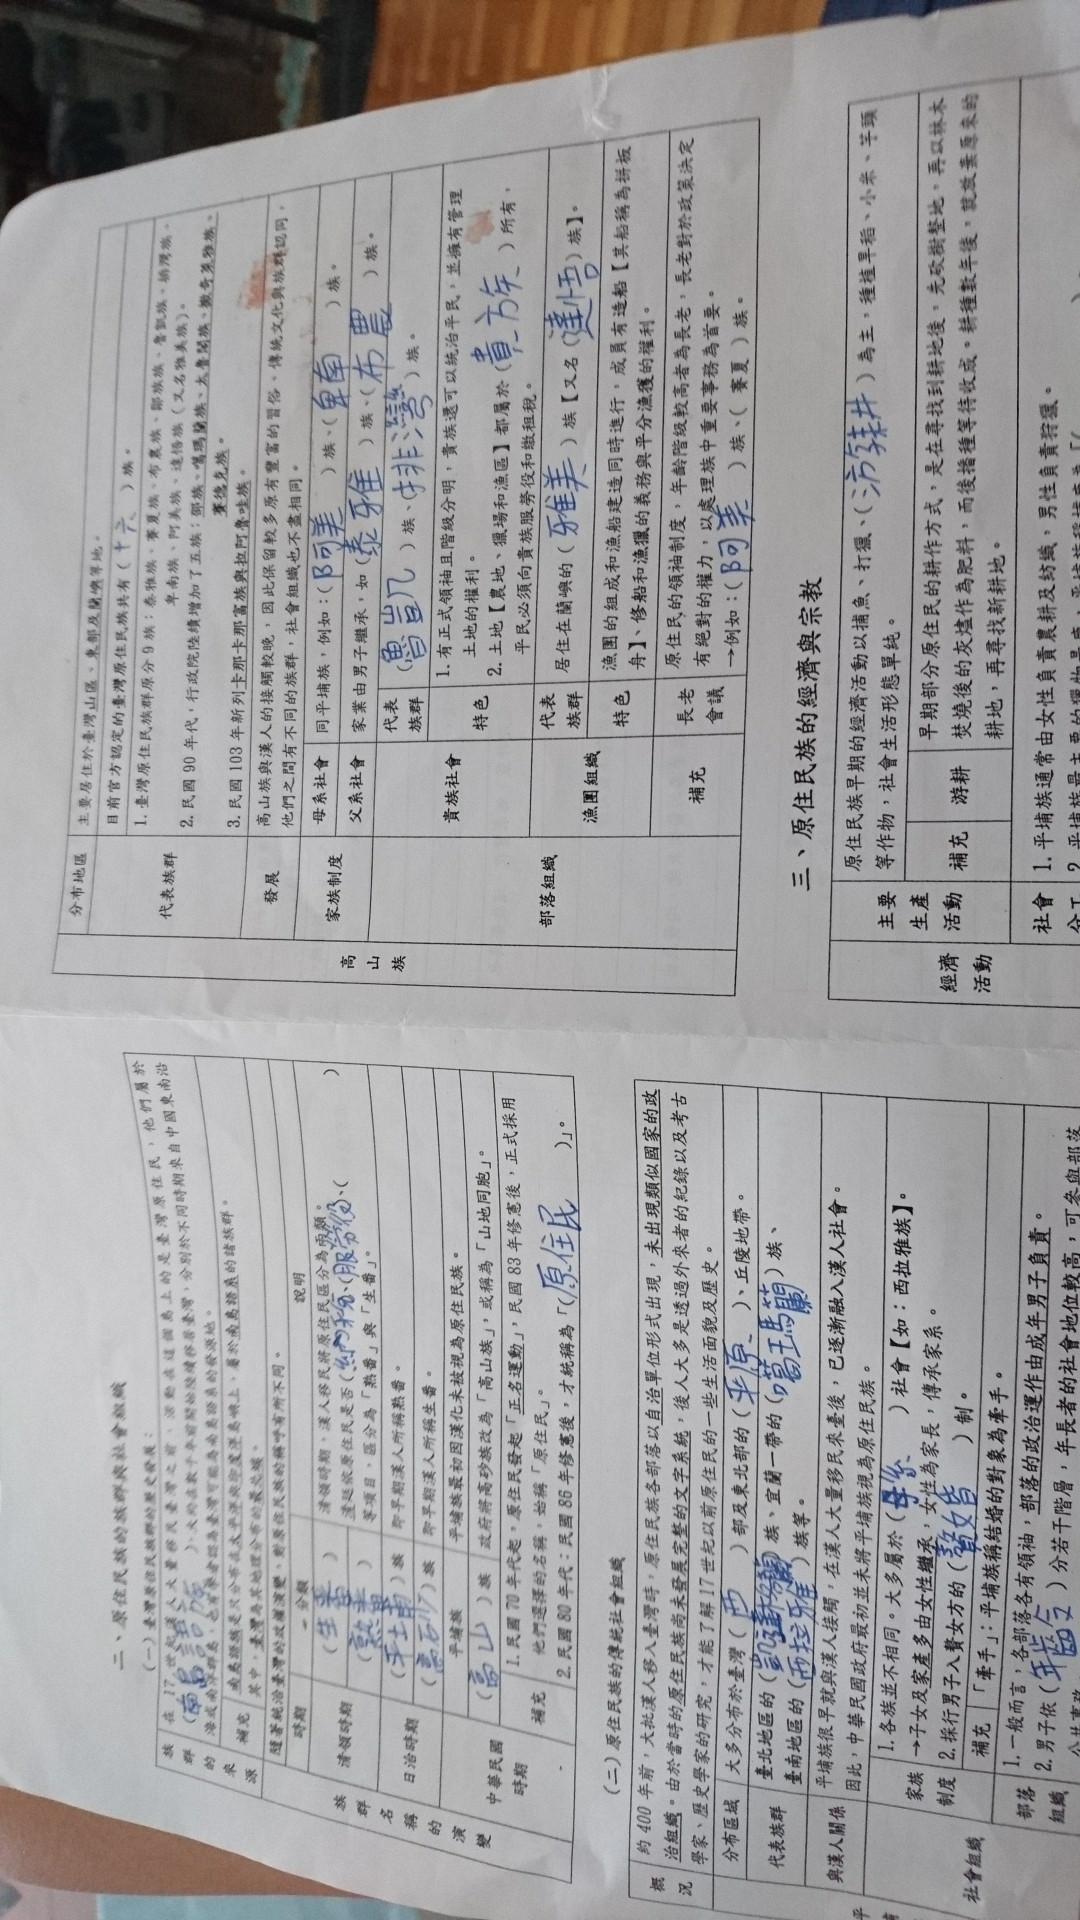 二、原住民族的族群與社會組織
(一)臺灣原住民族群的歷史發展:
族群的來源
在 17 世紀漢人大量移民臺灣之前,活動在這個島上的是臺灣原住民,他們屬於
(南島語族),大約在數千年前開始陸續移居臺灣,分別於不同時期來自中國東南沿
補充
南島語族是只分布在太平洋與印度洋島嶼上、屬於南島語系的諸族群。
其中,臺灣為其地理分布的最北端。
族群名稱的演變
隨著統治臺灣的政權演變,對原住民族的稱呼有所不同。
時期 分類 說明
清領時期
(生番)
(熟番)
清領時期,漢人移民將原住民區分為兩類。
這是依原住民是否(納稅、(服勞役、( )
等項目,區分為「熟番」與「生番」。
日治時期
(平埔)族 即早期漢人所稱熟番。
(高砂)族 即早期漢人所稱生番。
中華民國時期
平埔族 平埔族最初因漢化未被視為原住民族。
(高山)族 政府將高砂族改為「高山族」,或稱為「山地同胞」。
補充
1. 民國 70 年代起,原住民發起「正名運動」,民國 83 年修憲後,正式採用
他們選擇的名稱,始稱「原住民」。
2. 民國 80 年代:民國 86 年修憲後,才統稱為「(原住民)」。
(二)原住民族的傳統社會組織
概況
約 400 年前,大批漢人移入臺灣時,原住民族各部落以自治單位形式出現,未出現類似國家的政
治組織。由於當時的原住民族尚未發展完整的文字系統,後人大多是透過外來者的紀錄以及考古
學家、歷史學家的研究,才能了解 17 世紀以前原住民的一些生活面貌及歷史。
分布區域 大多分布於臺灣(西)部及東北部的(平原)、丘陵地帶。
代表族群
臺北地區的(凱達格蘭)族、宜蘭一帶的(噶瑪蘭)族、
臺南地區的(西拉雅)族等。
與漢人關係
平埔族很早就與漢人接觸,在漢人大量移民來臺後,已逐漸融入漢人社會。
因此,中華民國政府最初並未將平埔族視為原住民族。
社會組織
家族制度
1. 各族並不相同。大多屬於(母系)社會【如:西拉雅族】。
→子女及家產多由女性繼承,女性為家長,傳承家系。
2. 採行男子入贅女方的(招贅婚)制。
補充 「牽手」:平埔族稱結婚的對象為牽手。
部落組織
1. 一般而言,各部落各有領袖,部落的政治運作由成年男子負責。
2. 男子依(年齡)分若干階層,年長者的社會地位較高,可參與部落
高山族
分布地區 主要居住於臺灣山區、東部及蘭嶼等地。
代表族群
目前官方認定的臺灣原住民族共有(十六)族。
1. 臺灣原住民族群原分 9 族:泰雅族、賽夏族、布農族、鄒族族、魯凱族、排灣族、
卑南族、阿美族、達悟族(又名雅美族)。
2. 民國 90 年代,行政院陸續增加了五族:邵族、噶瑪蘭族、太魯閣族、撒奇萊雅族、
賽德克族。
3. 民國 103 年新列卡那卡那富族與拉阿魯哇族。
發展
高山族與漢人的接觸較晚,因此保留較多原有豐富的習俗、傳統文化與族群認同,
他們之間有不同的族群,社會組織也不盡相同。
家族制度
母系社會 同平埔族,例如:(阿美)族、(卑南)族。
父系社會 家業由男子繼承,如(泰雅)族、(布農)族。
部落組織
貴族社會
代表族群 (魯凱)族、(排灣)族。
特色
1. 有正式領袖且階級分明,貴族還可以統治平民,並擁有管理
土地的權利。
2. 土地【農地、獵場和漁區】都屬於(貴族)所有,
平民必須向貴族服勞役和繳租稅。
漁團組織
代表族群 居住在蘭嶼的(雅美)族【又名(達悟)族】。
特色
漁團的組成和漁船建造同時進行,成員有造船【其船稱為拼板
舟】、修船和漁獵的義務與平分漁獲的權利。
補充
長老會議
原住民的領袖制度,年齡階級較高者為長老,長老對於政策決定
有絕對的權力,以處理族中重要事務為首要。
→例如:(阿美)族、(賽夏)族。
三、原住民族的經濟與宗教
經濟活動
主要生產活動
原住民族早期的經濟活動以捕魚、打獵、(游耕)為主,種植旱稻、小米、芋頭
等作物,社會生活形態單純。
補充 游耕
早期部分原住民的耕作方式,是在尋找到耕地後,先砍樹整地,再以林木
焚燒後的灰燼作為肥料,而後播種等待收成。耕種數年後,就放棄原來的
耕地,再尋找新耕地。
社會分工
1. 平埔族通常由女性負責農耕及紡織,男性負責狩獵。